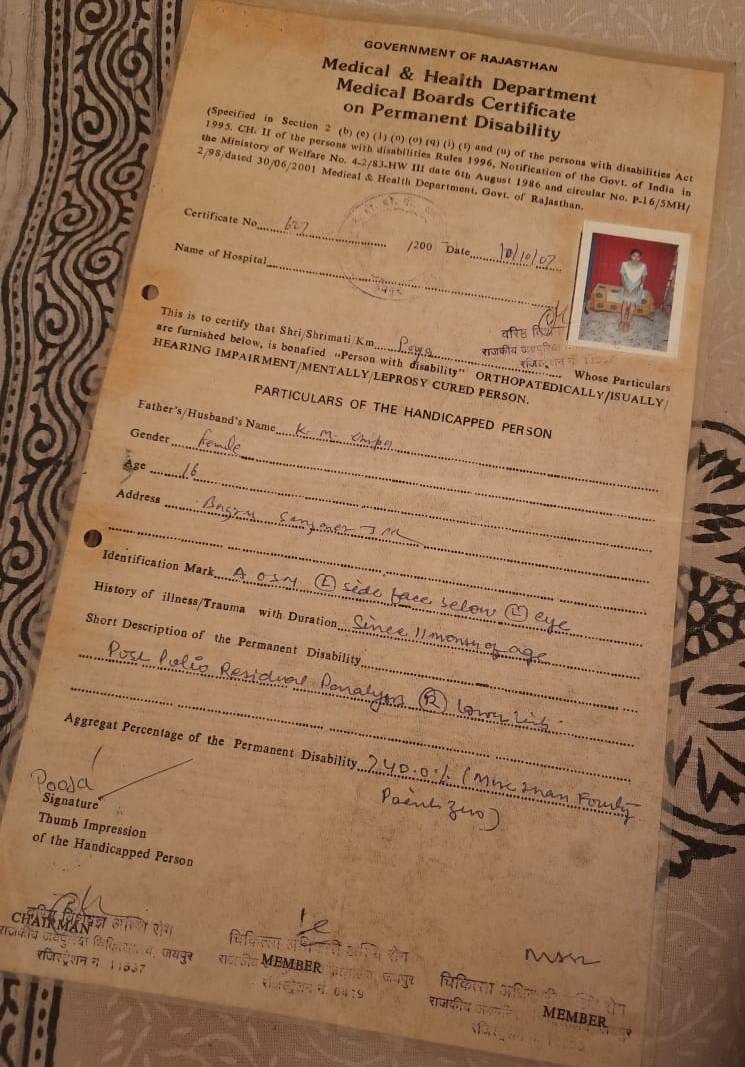 GOVERNMENT OF RAJASTHAN
Medical & Health Department
Medical Boards Certificate
on Permanent Disability
(Specified in Section 2 (b) (e) (i) (n) (o) (q) (i) (t) and (u) of the persons with disabilities Act
1995. CH. II of the persons with disabilities Rules 1996, Notification of the Govt. of India in
the Ministory of Welfare No. 4-2/83-HW III date 6th August 1986 and circular No. P-16/5MH/
2/98/dated 30/06/2001 Medical & Health Department, Govt. of Rajasthan.
Certificate No. 627 /200 Date 10/10/07
Name of Hospital
वरिष्ठ
राजकीय जयपुरिया
रजिस्ट्रेशन नं
This is to certify that Shri/Shrimati/Km. Whose Particulars
are furnished below, is bonafied "Person with disability" ORTHOPATEDICALLY/ISUALLY/
HEARING IMPAIRMENT/MENTALLY/LEPROSY CURED PERSON.
PARTICULARS OF THE HANDICAPPED PERSON
Father's/Husband's Name K. M.
Gender Female
Age 16
Address
Identification Mark A L side face below L eye
History of illness/Trauma with Duration Since 11 months of age
Short Description of the Permanent Disability
Post Polio Residual Paralysis R Lower limb
Aggregat Percentage of the Permanent Disability 240.0% (More than Fourty
Point Zero)
Pooja
Signature
Thumb Impression
of the Handicapped Person
CHAIRMAN
राजकीय जयपुरिया चिकित्सालय, जयपुर
रजिस्ट्रेशन नं
चिकित्सा अधिकारी अस्थि रोग
MEMBER
जयपुर
रजिस्ट्रेशन नं.
चिकित्सा अधिकारी अस्थि रोग
MEMBER